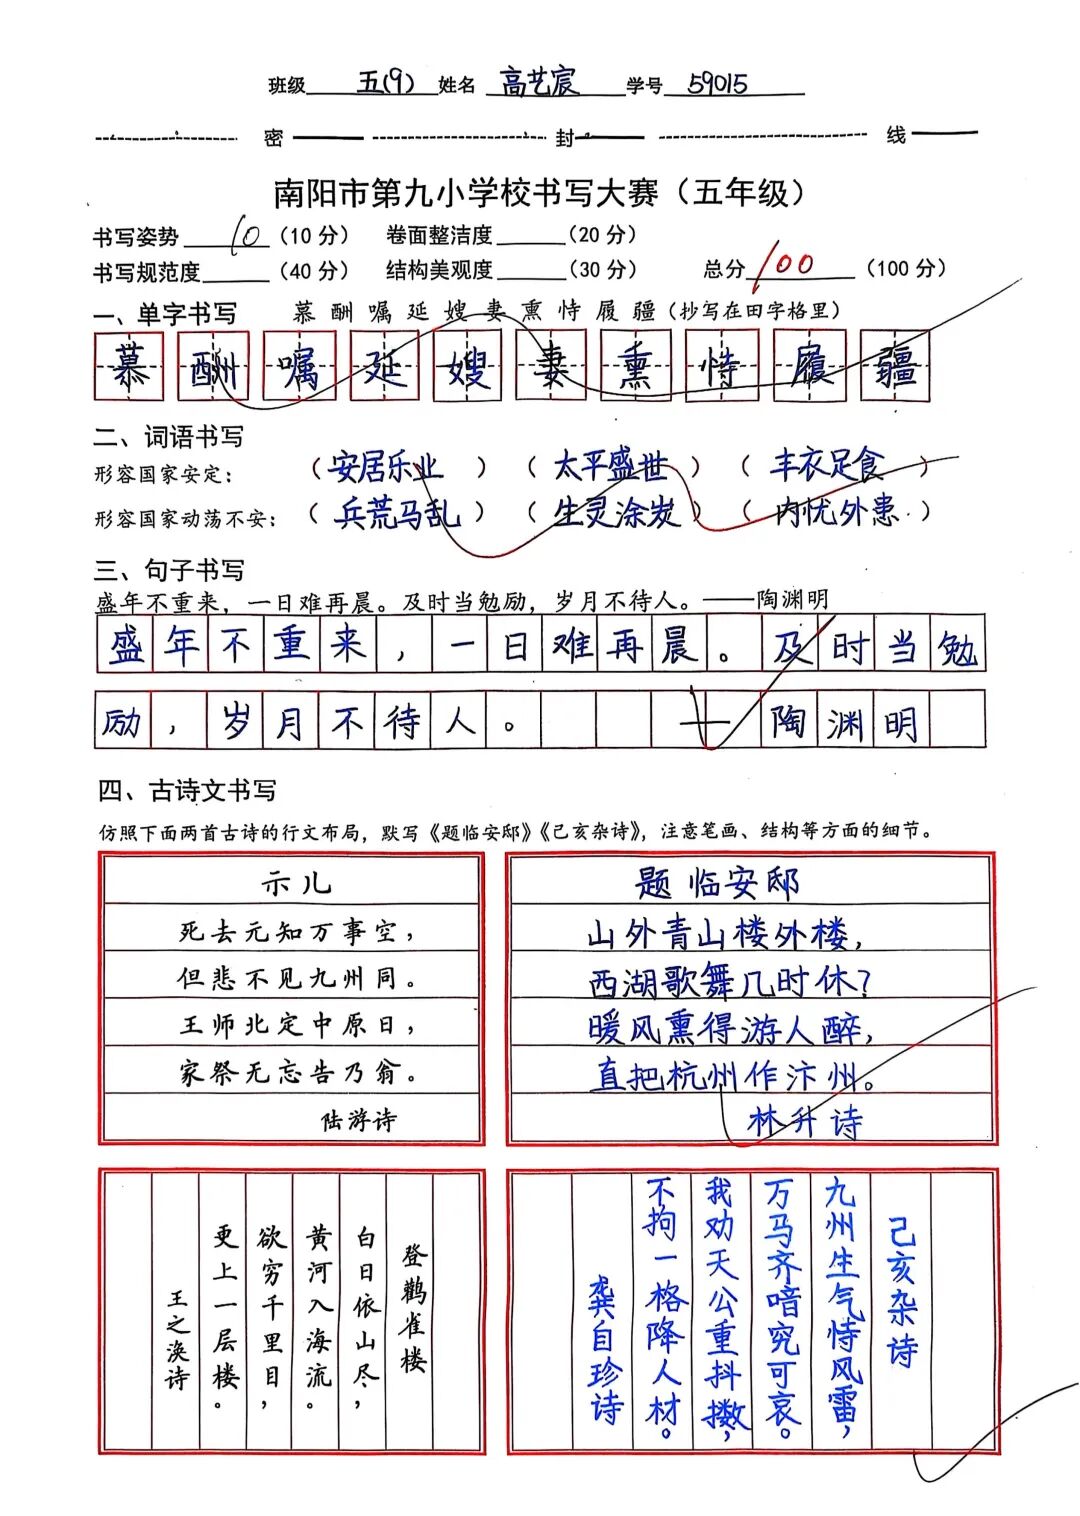 班级 五(9) 姓名 高艺宸 学号 59015
密 封 线
南阳市第九小学校书写大赛（五年级）
书写姿势 10 （10 分） 卷面整洁度 （20 分）
书写规范度 （40 分） 结构美观度 （30 分） 总分 100 （100 分）
一、单字书写 慕 酬 嘱 延 嫂 妻 熏 恃 履 疆（抄写在田字格里）
慕 酬 嘱 延 嫂 妻 熏 恃 履 疆
二、词语书写
形容国家安定： （安居乐业） （太平盛世） （丰衣足食）
形容国家动荡不安： （兵荒马乱） （生灵涂炭） （内忧外患）
三、句子书写
盛年不重来，一日难再晨。及时当勉励，岁月不待人。——陶渊明
盛年不重来，一日难再晨。及时当勉
励，岁月不待人。——陶渊明
四、古诗文书写
仿照下面两首古诗的行文布局，默写《题临安邸》《己亥杂诗》，注意笔画、结构等方面的细节。
示儿
死去元知万事空，
但悲不见九州同。
王师北定中原日，
家祭无忘告乃翁。
陆游诗
题临安邸
山外青山楼外楼，
西湖歌舞几时休？
暖风熏得游人醉，
直把杭州作汴州。
林升诗
登鹳雀楼
白日依山尽，
黄河入海流。
欲穷千里目，
更上一层楼。
王之涣诗
己亥杂诗
九州生气恃风雷，
万马齐喑究可哀。
我劝天公重抖擞，
不拘一格降人材。
龚自珍诗